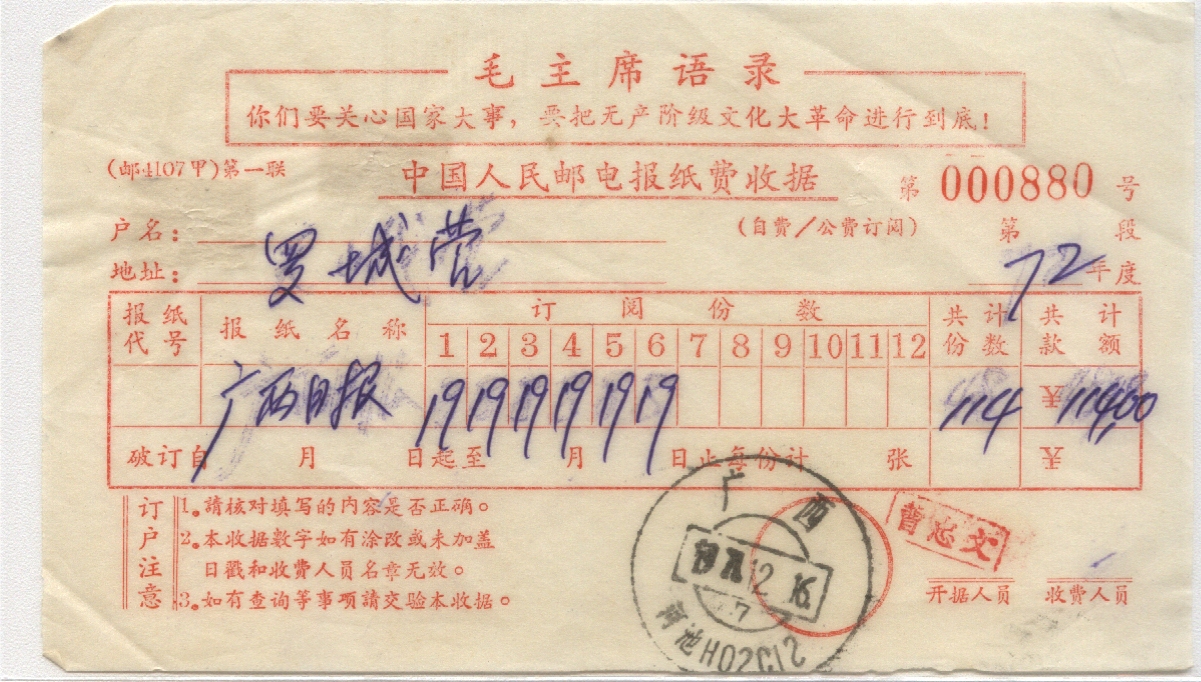 毛主席语录
你们要关心国家大事，要把无产阶级文化大革命进行到底！
(邮4107甲)第一联
中国人民邮电报纸费收据
第 000880 号
户名：
(自费/公费订阅)
第 段
地址：
罗城营
72 年度
报纸代号 报纸名称 订阅份数 共计份数 共计款额
1 2 3 4 5 6 7 8 9 10 11 12
广西日报 19 19 19 19 19 19 114 114.00
破订自 月 日起至 月 日止每份计 张
订户注意
1。請核对填写的内容是否正确。
2。本收据数字如有涂改或未加盖
日戳和收费人员名章无效。
3。如有查询等事项請交验本收据。
开据人员 收费人员
广西
12 16
河池H02C12